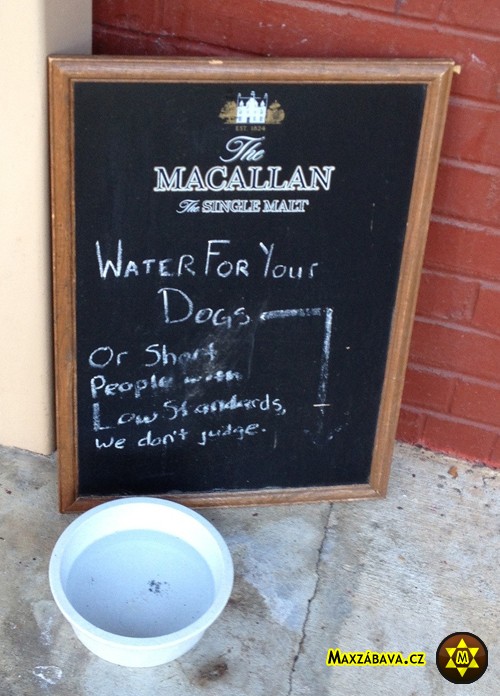 EST. 1824
The
MACALLAN
The SINGLE MALT
WATER FOR YOUR
DOGS
Or Short
People with
Low Standards,
we don't judge.
MAXZÁBAVA.CZ
M